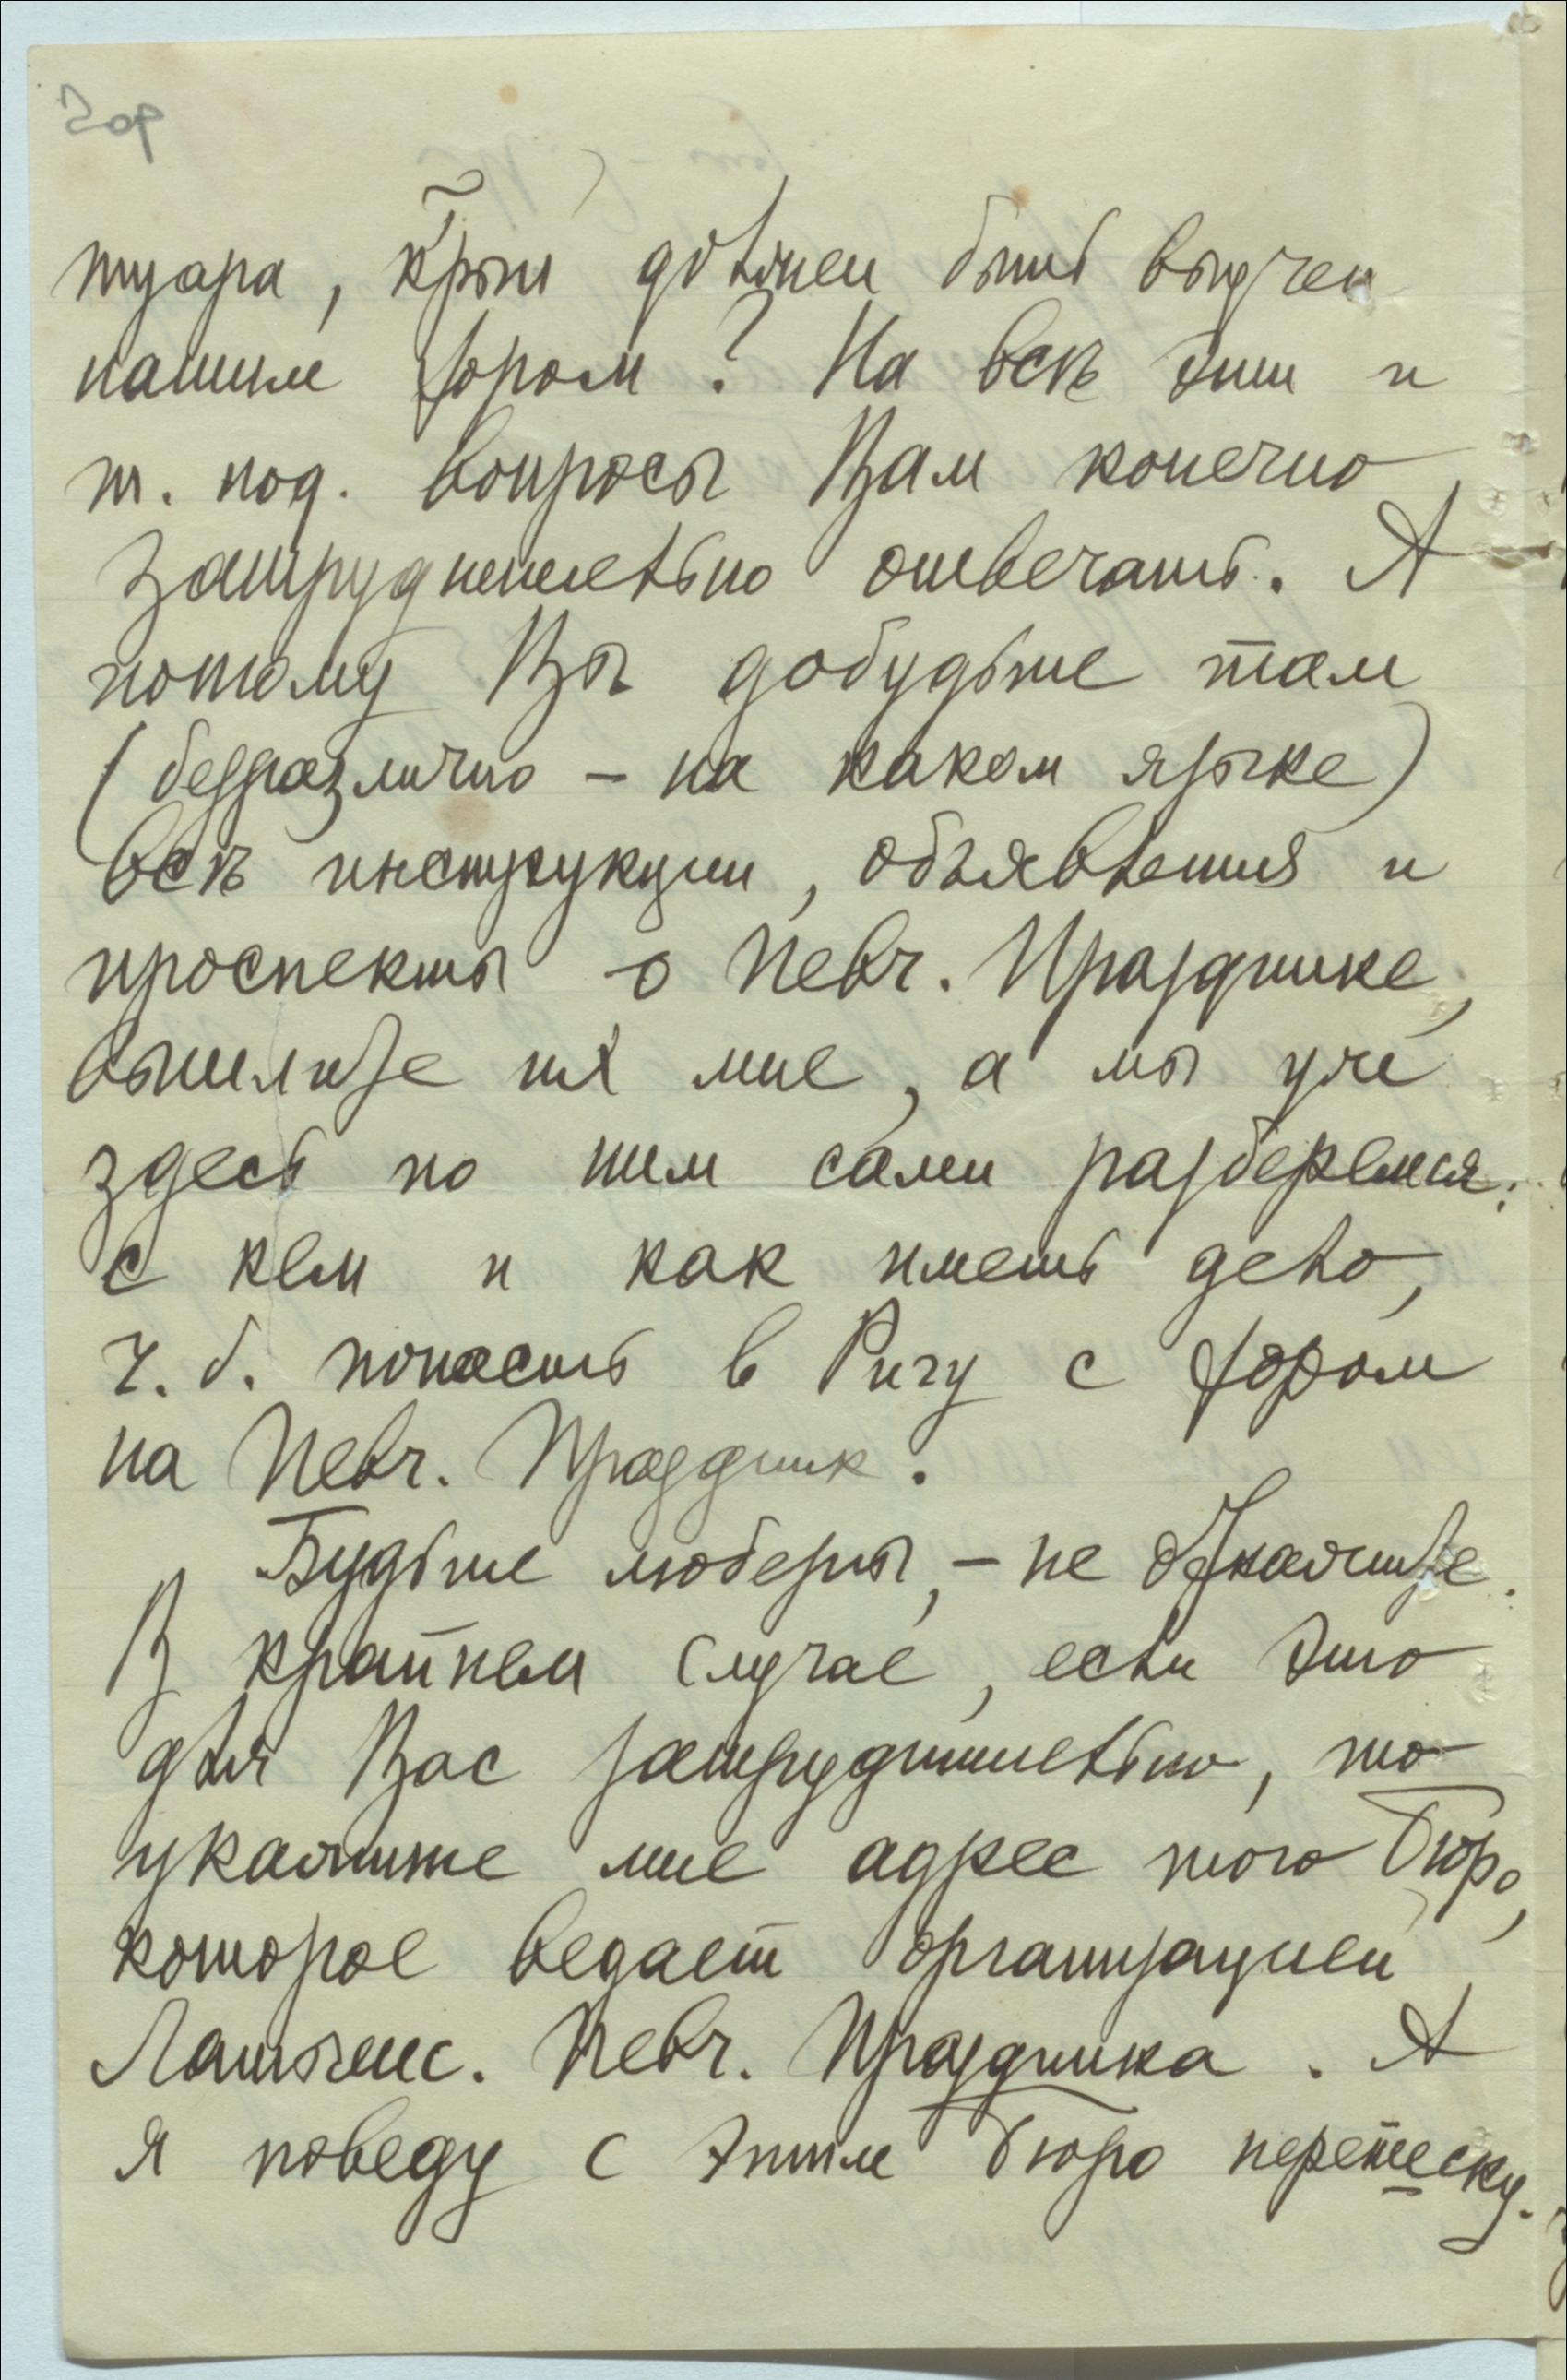 3 об
туара, к̃рый должен быть выучен
нашим хором? На всѣ эти и
т. под. вопросы Вам конечно
затруднительно отвечать. А
потому Вы добудьте там
(безразлично – на каком языке)
всѣ инструкции, объявления и
проспекты о Певч. Празднике,
вышлите их мне, а мы уже
здесь по ним сами разберемся:
с кем и как иметь дело,
ч. б. попасть в Ригу с хором
на Певч. Праздник.
Будьте любезны, – не откажите.
В крайнем случае, если это
для Вас затруднительно, то
укажите мне адрес того Бюро,
которое ведает организацией
Латышс. Певч. Праздника. А
я поведу с этим Бюро переписку.